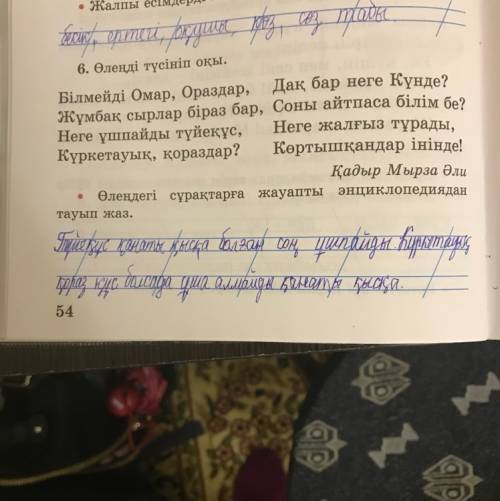 • Жалпы есімдерді
бесік, ертегі, оқушы, қаз, сөз, табы.
6. Өлеңді түсініп оқы.
Білмейді Омар, Ораздар,
Жұмбақ сырлар біраз бар,
Неге ұшпайды түйеқұс,
Күркетауық, қораздар?
Дақ бар неге Күнде?
Соны айтпаса білім бе?
Неге жалғыз тұрады,
Көртышқандар інінде!
Қадыр Мырза Әли
• Өлеңдегі сұрақтарға жауапты энциклопедиядан
тауып жаз.
Түйеқұс қанаты қысқа болған соң ұшпайды. Күркетауық
қораз құс болсада ұша алмайды қанаты қысқа.
54